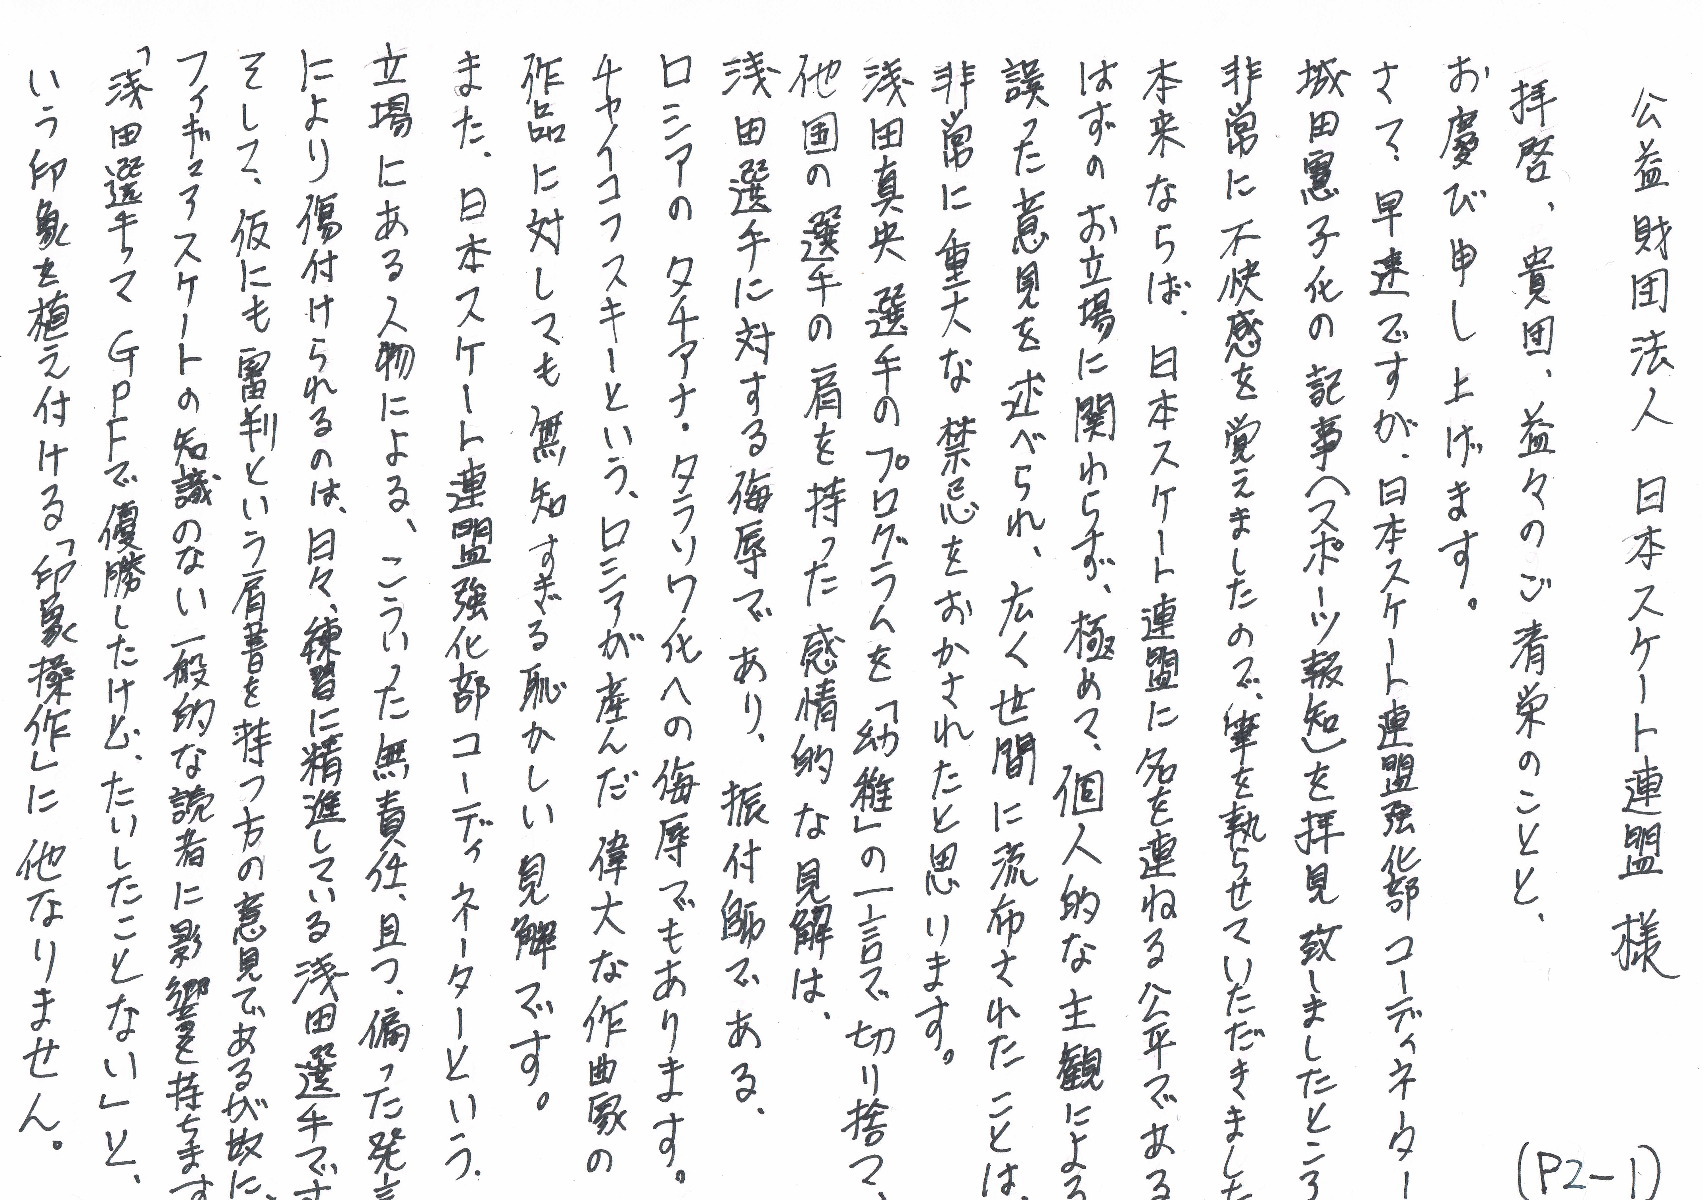 公益財団法人 日本スケート連盟 様
拝啓、貴団、益々のご清栄のことと、
お慶び申し上げます。
さて、早速ですが、日本スケート連盟強化部 コーディネーター
城田憲子化の記事(スポーツ報知)を拝見致しましたところ
非常に不快感を覚えましたので、筆を執らせていただきました
本来ならば、日本スケート連盟に名を連ねる公平である
はずのお立場に関わらず、極めて、個人的な主観による
誤った意見を述べられ、広く世間に流布されたことは、
非常に重大な禁忌をおかされたと思います。
浅田真央選手のプログラムを「幼稚」の一言で切り捨て、
他国の選手の肩を持った感情的な見解は、
浅田選手に対する侮辱であり、振付師である、
ロシアのタチアナ・タラソワ化への侮辱でもあります。
チャイコフスキーという、ロシアが産んだ偉大な作曲家の
作品に対しても無知すぎる恥かしい見解です。
また、日本スケート連盟強化部コーディネーターという、
立場にある人物による、こういった無責任、且つ、偏った発言
により傷付けられるのは、日々、練習に精進している浅田選手です
そして、仮にも審判という肩書を持つ方の意見であるが故に、
フィギュアスケートの知識のない一般的な読者に影響を持ちます
「浅田選手って GPFで優勝したけど、たいしたことない」と、
いう印象を植え付ける「印象操作」に他なりません。
(P2-1)